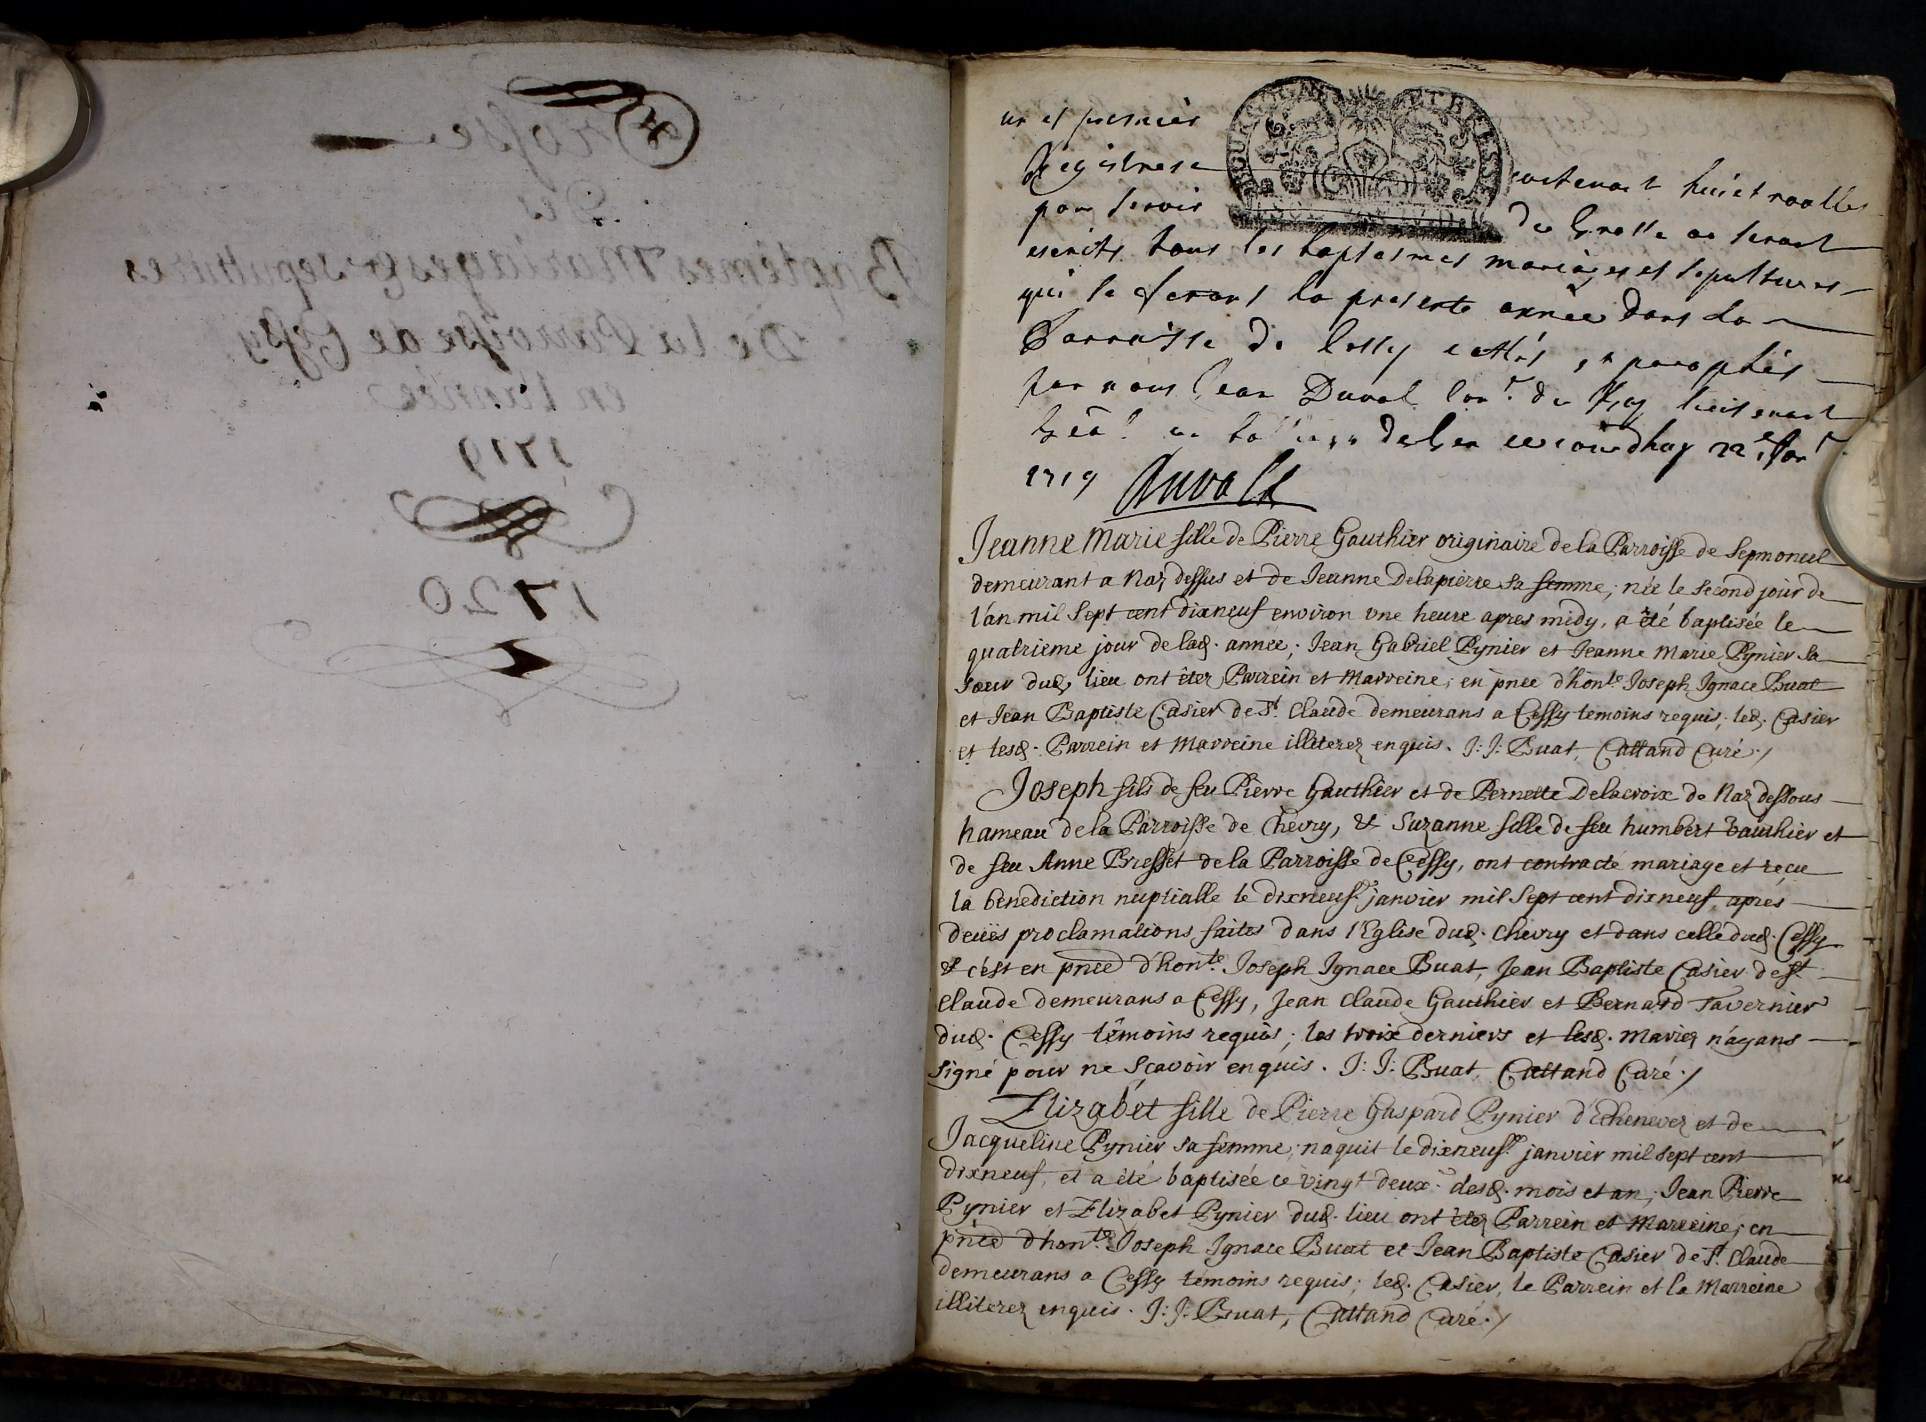 Grosse
Des
Baptêmes Mariages & sepultures
De la Parroisse de Cessy
en l'année
1719
1720
un et premier
Registre contenant huict roolles
pour servir de Grosse ou seront
escrits tous les baptesmes mariages et sepultures
qui se feront la presente année dans la
Parroisse de Cessy cottés et paraphés
par nous Jean Duval Con.r du Roy lieutenant
1719 Duval
Jeanne Marie fille de Pierre Gauthier originaire de la Parroisse de Sepmoncel
demeurant a Naz dessus et de Jeanne Delapierre sa femme, née le second jour de
l'an mil sept cent dixneuf environ une heure apres midy, a été baptisée le
quatrieme jour de lad. annee; Jean Gabriel Pynier et Jeanne Marie Pynier sa
sœur dud. lieu ont étez Parrein et Marreine; en pnce d'hon.te Joseph Ignace Buat
et Jean Baptiste Casier de S.t Claude demeurans a Cessy temoins requis; led. Casier
et lesd. Parrein et Marreine illiterez enquis. J: J: Buat, Cattand Curé./
Joseph fils de feu Pierre Gauthier et de Pernette Delacroix de Naz dessous
hameau de la Parroisse de Chevry, & Suzanne fille de feu humbert Gauthier et
de feu Anne Bresset de la Parroisse de Cessy, ont contracté mariage et reçu
la benediction nuptialle le dixneuf.e janvier mil sept cent dixneuf, après
deües proclamations faites dans l'Eglise dud. Chevry et dans celle dud. Cessy
& c'est en pnce d'hon.te Joseph Ignace Buat, Jean Baptiste Casier de S.t
Claude demeurans a Cessy, Jean Claude Gauthier et Bernard Tavernier
dud. Cessy temoins requis; les troix derniers et lesd. Mariez n'ayans
signé pour ne sçavoir enquis. J: J: Buat, Cattand Curé./
Elizabet fille de Pierre Gaspard Pynier d'Echenevez et de
Jacqueline Pynier sa femme; naquit le dixneuf.e janvier mil sept cent
dixneuf, et a été baptisée le vingt deux.e desd. mois et an; Jean Pierre
Pynier et Elizabet Pynier dud. lieu ont étez Parrein et Marreine; en
pnce d'hon.te Joseph Ignace Buat et Jean Baptiste Casier de S.t Claude
demeurans a Cessy témoins requis; led. Casier, le Parrein et la Marreine
illiterez enquis. J: J: Buat, Cattand Curé./